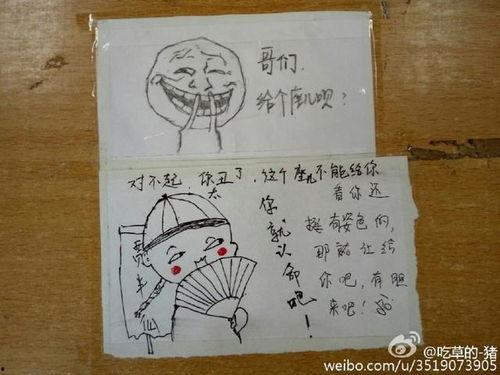 哥们,
给个座儿呗?
对不起,你太丑了,这个座儿不能给你
你就认命吧!
看你还
挺有姿色的,
那就让给
你吧,有胆
来吧!
半仙
@吃草的-猪
weibo.com/u/3519073905